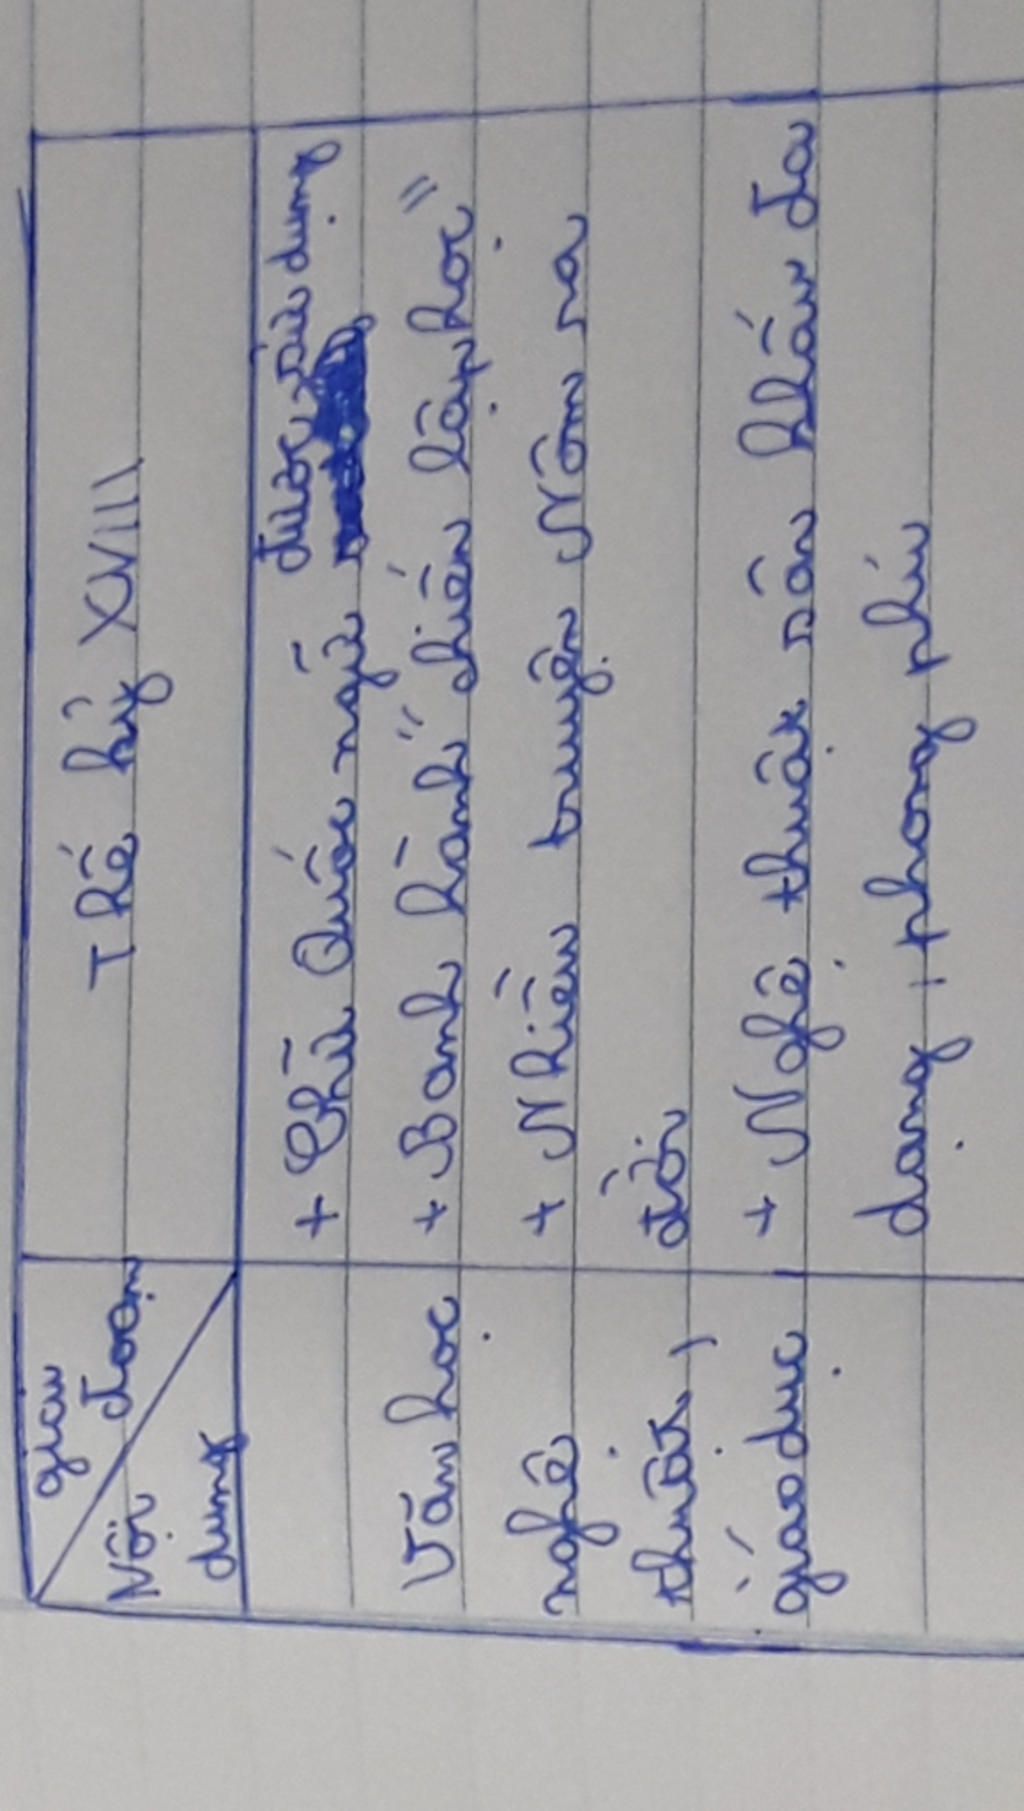 giai đoạn
Nội dung
Thế kỷ XVIII
Văn học
nghệ
thuật,
giáo dục
+ Chữ Quốc ngữ được sử dụng
+ Banh hành "chiến lập học"
+ Nhiều truyện Nôm ra
đời
+ Nghệ thuật sân khấu đa
dạng, phong phú